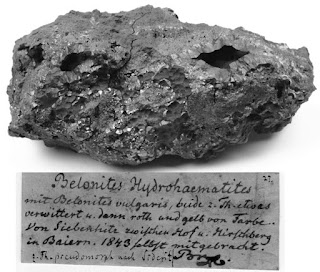 27.
Belonites Hydrohaematites
mit Belonites vulgaris, beide z. Th. etwas
verwittert u. dann roth und gelb von Farbe.
Von Siebenhitz zwischen Hof u. Hirschberg
in Baiern. 1843 selbst mitgebracht
z. Th. pseudomorph nach Siderit